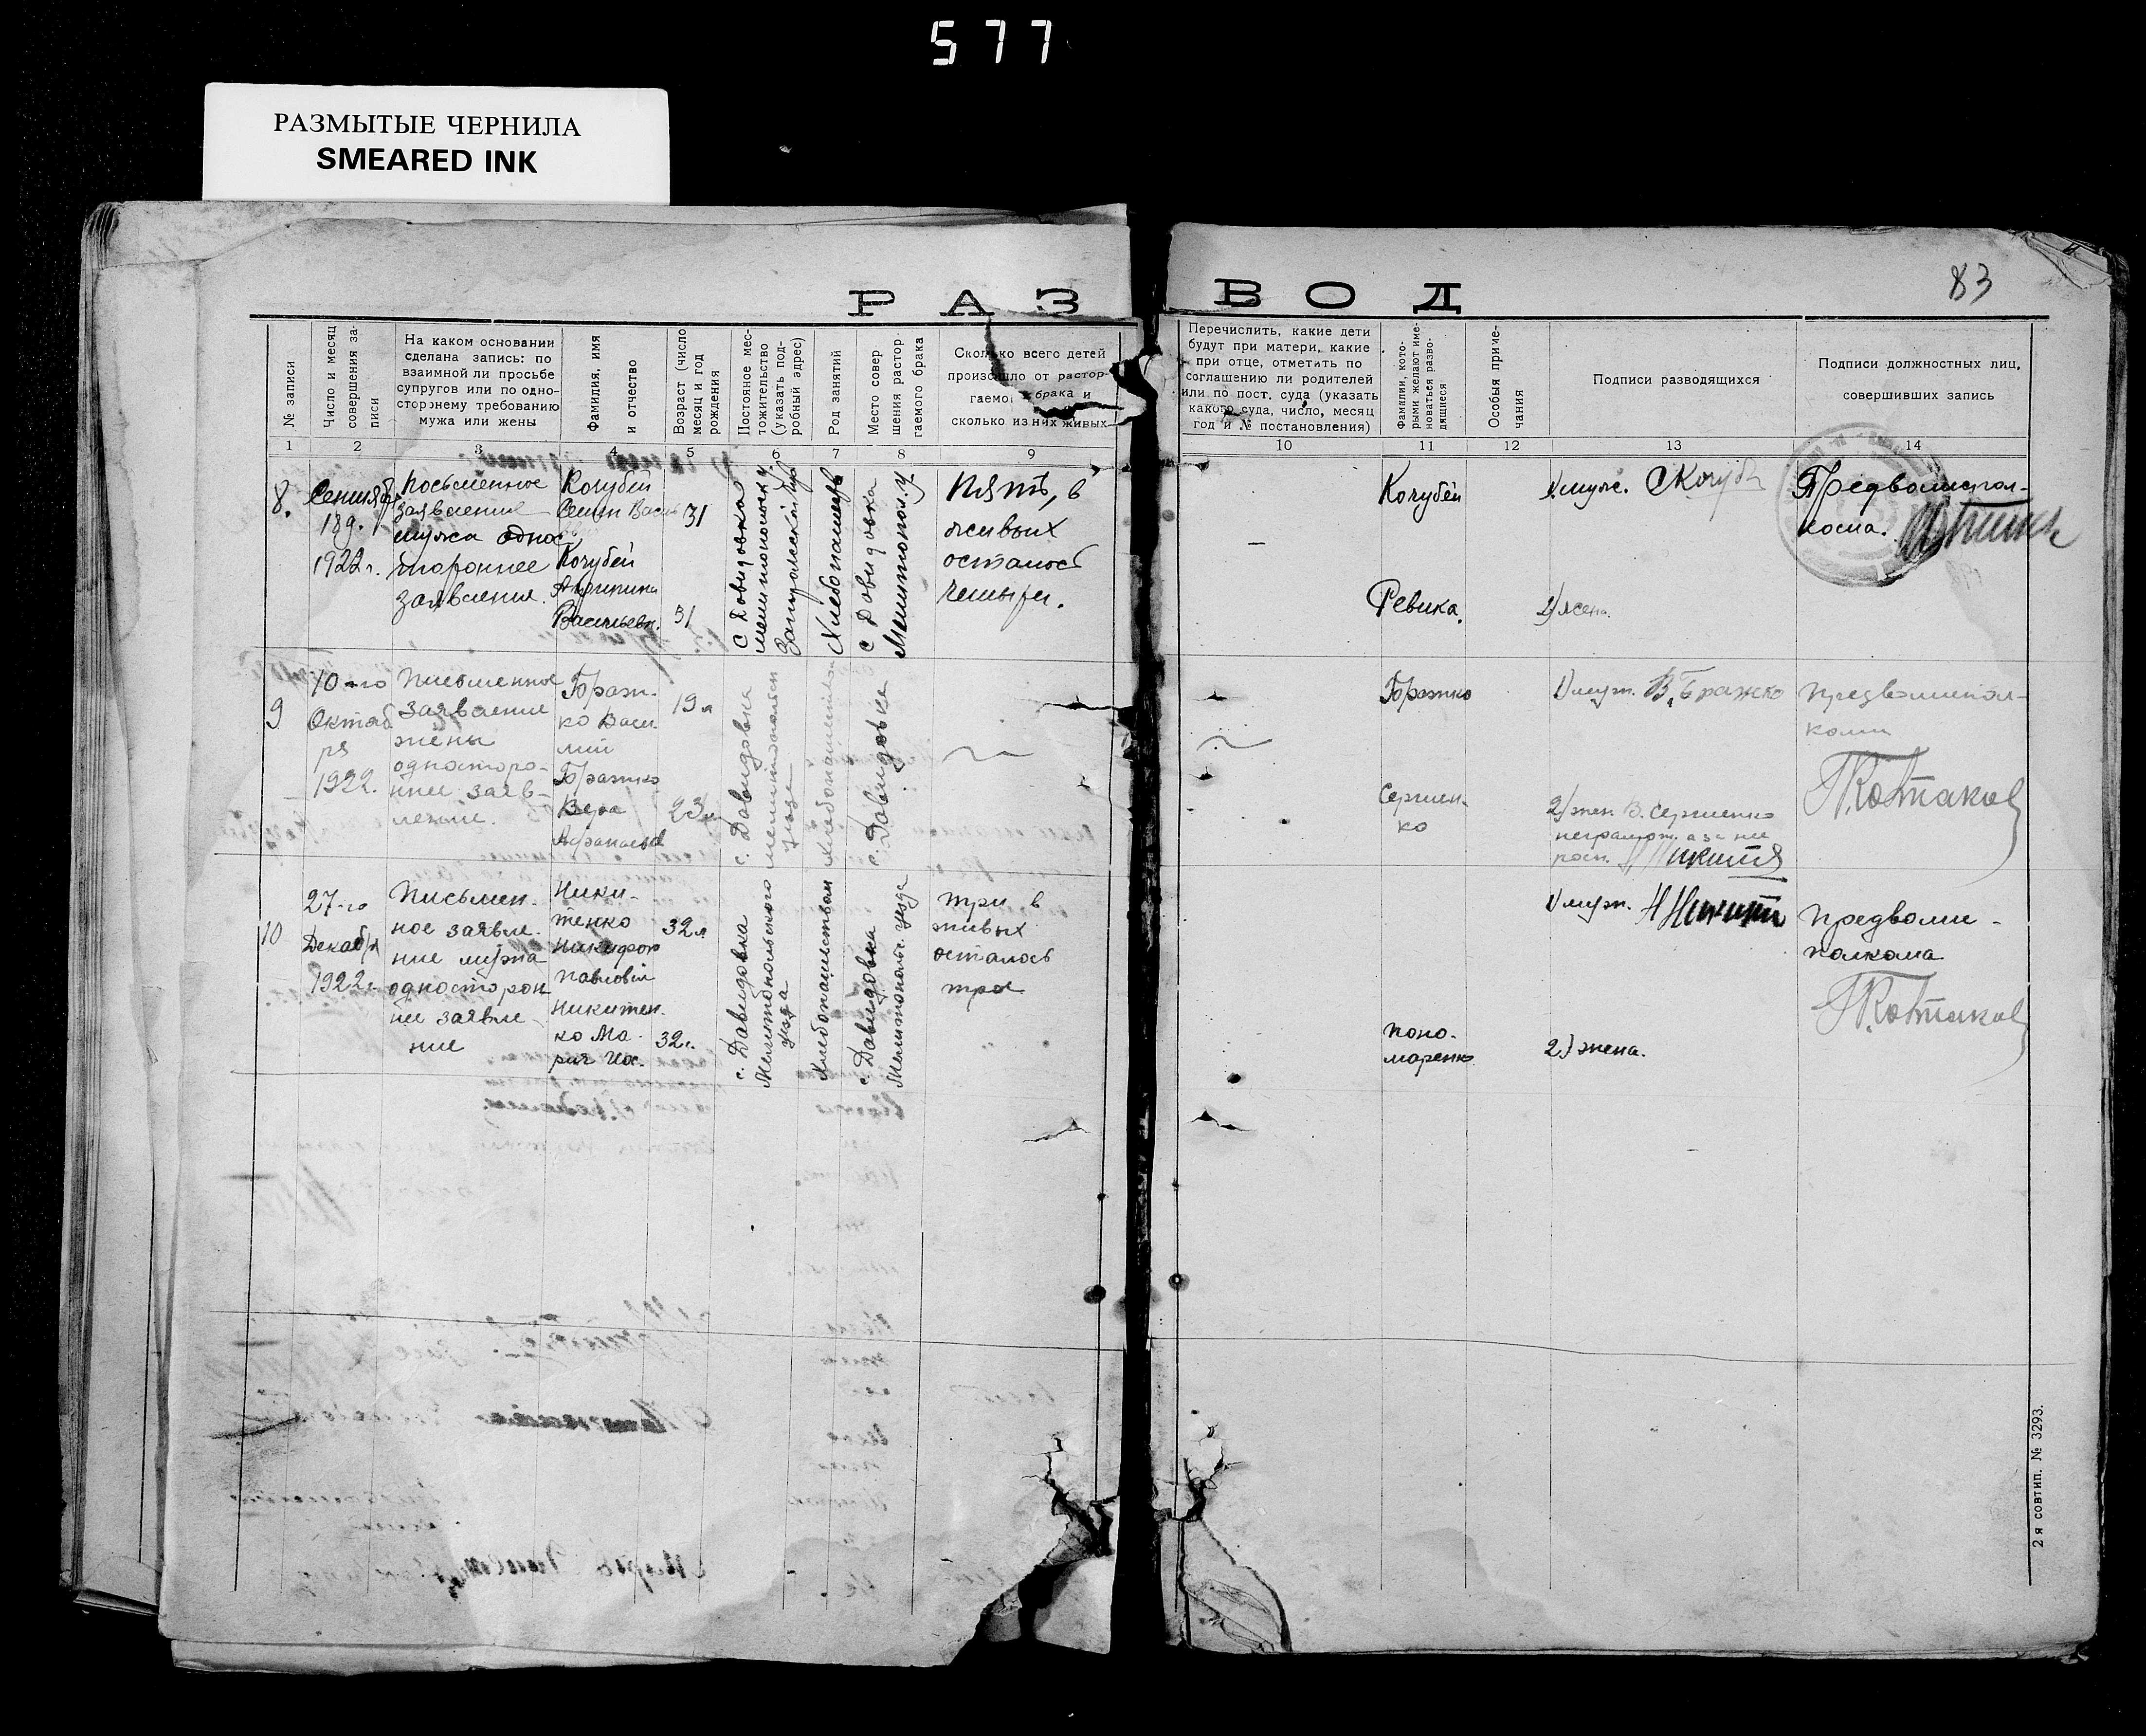 577
РАЗМЫТЫЕ ЧЕРНИЛА
SMEARED INK
83
РАЗВОД
№ записи
Число и месяц
совершения за-
писи
На каком основании
сделана запись: по
взаимной ли просьбе
супругов или по одно-
стороннему требованию
мужа или жены
Фамилия, имя
и отчество
Возраст (число
месяц и год
рождения
Постояное мес-
тожительство
(указать под-
робный адрес)
Род занятий
Место совер
шения растор
гаемого брака
Сколько всего детей
произошло от растор-
гаемого брака и
сколько из них живых
Перечислить, какие дети
будут при матери, какие
при отце, отметить по
соглашению ли родителей
или по пост. суда (указать
какого суда, число, месяц
год и № постановления)
Фамилии, кото-
рыми желают име-
новаться разво-
дящиеся
Особыя приме-
чания
Подписи разводящихся
Подписи должностных лиц,
совершивших запись
1 2 3 4 5 6 7 8 9 10 11 12 13 14
8.
Сентябр
18го
1922 г.
Письменное
заявление
мужа однос
тороннее
заявление.
Кочубей
Семен Васил
Кочубей
Васильевн.
31
31
с Давидовка
Хлебопашеств
с Давидовка
Мелитопол. у.
Пять, в
живых
осталось
четыри.
Кочубей
Ревика.
1) муж. СКочубе
2) жена.
Предволиспол-
кома.
9
10-го
Октяб
ря
1922.
Письменное
заявление
жены
односторо-
ннее заяв-
ление.
Бражко
Васи
лий
Бражко
Вера
19 л
23 л
с. Давидовка
Мелитопольск
уезда
Хлебопашество
с. Давидовка
Бражко
Сергиен-
ко
1) муж. В. Бражко
2) жен. В. Сергиенко
неграмотн. а за нее
росп.
Предволиспол-
кома
10
27-го
Декабря
1922 г.
Письмен-
ное заявле-
ние мужа
односторон
нее заявле-
ние
Ники-
тенко
Никифор
Павлович
Никитен-
ко Ма-
рия
32 л
32 г.
с. Давидовка
Мелитопольского
уезда
Хлебопашеством
с. Давидовка
Мелитополь. уезда
три в
живых
осталось
три
Поно-
маренко
1) муж. Н Никити
2) жена.
Предволис-
полкома
2 я совтип. № 3293.